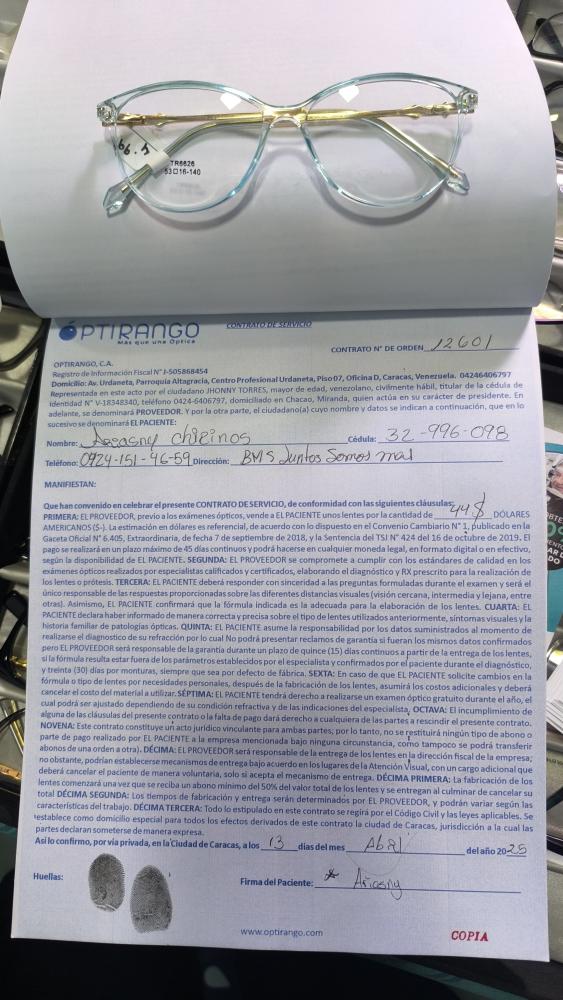 66.1
TR6626
53□16-140
ÓPTIRANGO
Más que una Óptica
CONTRATO DE SERVICIO
CONTRATO N° DE ORDEN 12601
OPTIRANGO, C.A.
Registro de Información Fiscal N° J-505868454
Domicilio: Av. Urdaneta, Parroquia Altagracia, Centro Profesional Urdaneta, Piso 07, Oficina D, Caracas, Venezuela. 04246406797
Representada en este acto por el ciudadano JHONNY TORRES, mayor de edad, venezolano, civilmente hábil, titular de la cédula de
Identidad N° V-18348340, teléfono 0424-6406797, domiciliado en Chacao, Miranda, quien actúa en su carácter de presidente. En
adelante, se denominará PROVEEDOR. Y por la otra parte, el ciudadano(a) cuyo nombre y datos se indican a continuación, que en lo
sucesivo se denominará EL PACIENTE:
Nombre: chirinos Cédula: 32-996-098
Teléfono: 0424-151-46-59 Dirección: BMS Juntos Somos mas
MANIFIESTAN:
Que han convenido en celebrar el presente CONTRATO DE SERVICIO, de conformidad con las siguientes cláusulas:
PRIMERA: EL PROVEEDOR, previo a los exámenes ópticos, vende a EL PACIENTE unos lentes por la cantidad de 44$ DÓLARES
AMERICANOS ($-). La estimación en dólares es referencial, de acuerdo con lo dispuesto en el Convenio Cambiario N° 1, publicado en la
Gaceta Oficial N° 6.405, Extraordinaria, de fecha 7 de septiembre de 2018, y la Sentencia del TSJ N° 424 del 16 de octubre de 2019. El
pago se realizará en un plazo máximo de 45 días continuos y podrá hacerse en cualquier moneda legal, en formato digital o en efectivo,
según la disponibilidad de EL PACIENTE. SEGUNDA: EL PROVEEDOR se compromete a cumplir con los estándares de calidad en los
exámenes ópticos realizados por especialistas calificados y certificados, elaborando el diagnóstico y RX prescrito para la realización de
los lentes o prótesis. TERCERA: EL PACIENTE deberá responder con sinceridad a las preguntas formuladas durante el examen y será el
único responsable de las respuestas proporcionadas sobre las diferentes distancias visuales (visión cercana, intermedia y lejana, entre
otras). Asimismo, EL PACIENTE confirmará que la fórmula indicada es la adecuada para la elaboración de los lentes. CUARTA: EL
PACIENTE declara haber informado de manera correcta y precisa sobre el tipo de lentes utilizados anteriormente, síntomas visuales y la
historia familiar de patologías ópticas. QUINTA: EL PACIENTE asume la responsabilidad por los datos suministrados al momento de
realizarse el diagnostico de su refracción por lo cual No podrá presentar reclamos de garantía si fueran los mismos datos confirmados
pero EL PROVEEDOR será responsable de la garantía durante un plazo de quince (15) días continuos a partir de la entrega de los lentes,
si la fórmula resulta estar fuera de los parámetros establecidos por el especialista y confirmados por el paciente durante el diagnóstico,
y treinta (30) días por monturas, siempre que sea por defecto de fábrica. SEXTA: En caso de que EL PACIENTE solicite cambios en la
fórmula o tipo de lentes por necesidades personales, después de la fabricación de los lentes, asumirá los costos adicionales y deberá
cancelar el costo del material a utilizar. SÉPTIMA: EL PACIENTE tendrá derecho a realizarse un examen óptico gratuito durante el año, el
cual podrá ser ajustado dependiendo de su condición refractiva y de las indicaciones del especialista, OCTAVA: El incumplimiento de
alguna de las cláusulas del presente contrato o la falta de pago dará derecho a cualquiera de las partes a rescindir el presente contrato.
NOVENA: Este contrato constituye un acto jurídico vinculante para ambas partes; por lo tanto, no se restituirá ningún tipo de abono o
parte de pago realizado por EL PACIENTE a la empresa mencionada bajo ninguna circunstancia, como tampoco se podrá transferir
abonos de una orden a otra). DÉCIMA: EL PROVEEDOR será responsable de la entrega de los lentes en la dirección fiscal de la empresa;
no obstante, podrían establecerse mecanismos de entrega bajo acuerdo en los lugares de la Atención Visual, con un cargo adicional que
deberá cancelar el paciente de manera voluntaria, solo si acepta el mecanismo de entrega. DÉCIMA PRIMERA: La fabricación de los
lentes comenzará una vez que se reciba un abono mínimo del 50% del valor total de los lentes y se entregan al culminar de cancelar su
total DÉCIMA SEGUNDA: Los tiempos de fabricación y entrega serán determinados por EL PROVEEDOR, y podrán variar según las
características del trabajo. DÉCIMA TERCERA: Todo lo estipulado en este contrato se regirá por el Código Civil y las leyes aplicables. Se
establece como domicilio especial para todos los efectos derivados de este contrato la ciudad de Caracas, jurisdicción a la cual las
partes declaran someterse de manera expresa.
Así lo confirmo, por vía privada, en la Ciudad de Caracas, a los 13 días del mes Abril del año 2025
Huellas:
Firma del Paciente: Ariasny
www.optirango.com
COPIA